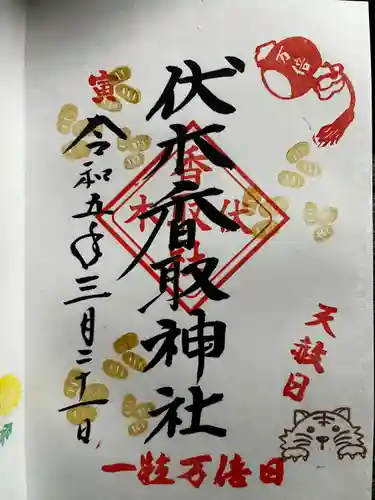 万倍
伏木香取神社
伏木香取社
寅
令和五年三月二十一日
寅
天赦日
一粒万倍日